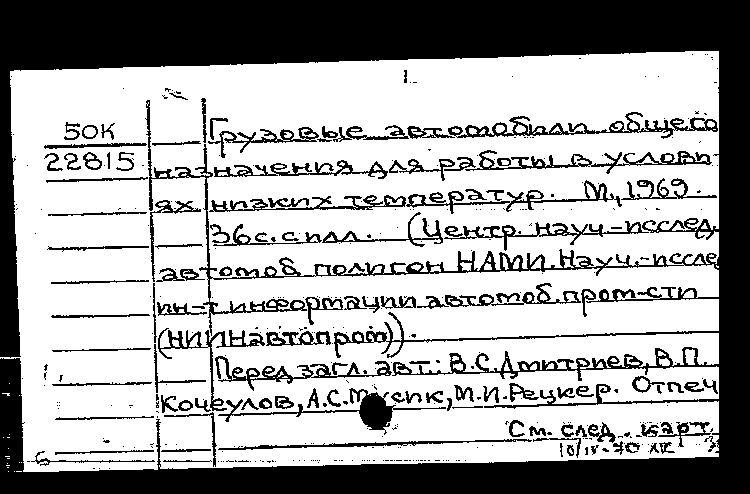 50К
22815
Грузовые автомобили общего
назначения для работы в услови-
ях низких температур. М., 1969.
36с. с илл. (Центр. науч.-исслед.
автомоб. полигон НАМИ. Науч.-иссле
ин-т информации автомоб. пром-сти
(НИИНавтопром)).
Перед загл. авт.: В.С.Дмитриев, В.П.
Кочеулов, А.С. М.И.Рецкер. Отпеч
См. след. карт.
10/IV-70